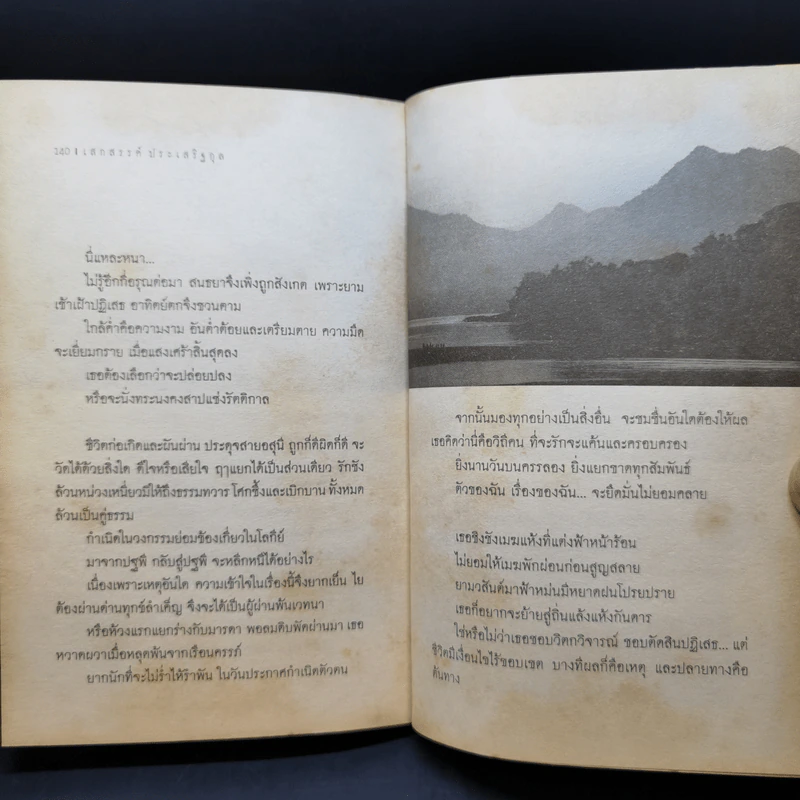 140 | เสกสรรค์ ประเสริฐกุล
นี่แหละหนา...
ไม่รู้อีกกี่อรุณต่อมา สนธยาจึงเพิ่งถูกสังเกต เพราะยาม
เช้าเฝ้าปฏิเสธ อาทิตย์ตกจึงชวนตาม
ใกล้ค่ำคือความงาม อันต่ำต้อยและเตรียมตาย ความมืด
จะเยี่ยมกราย เมื่อแสงเศร้าสิ้นสุดลง
เธอต้องเลือกว่าจะปล่อยปลง
หรือจะนั่งทระนงคงสาปแช่งรัตติกาล
ชีวิตก่อเกิดและผันผ่าน ประดุจสายอสุนี ถูกก็ดีผิดก็ดี จะ
วัดได้ด้วยสิ่งใด ดีใจหรือเสียใจ ฤๅแยกได้เป็นส่วนเดียว รักชัง
ล้วนหน่วงเหนี่ยวมิให้ถึงธรรมทวาร โศกซึ้งและเบิกบาน ทั้งหมด
ล้วนเป็นคู่ธรรม
กำเนิดในวงกรรมย่อมข้องเกี่ยวในโลกีย์
มาจากปฐพี กลับสู่ปฐพี จะหลีกหนีได้อย่างไร
เนื่องเพราะเหตุอันใด ความเข้าใจในเรื่องนี้จึงยากเย็น ไย
ต้องผ่านด่านทุกข์ลำเค็ญ จึงจะได้เป็นผู้ผ่านพ้นเวทนา
หรือห้วงแรกแยกร่างกับมารดา พอลมดิบพัดผ่านมา เธอ
หวาดผวาเมื่อหลุดพ้นจากเรือนครรภ์
ยากนักที่จะไม่ร่ำไห้รำพัน ในวันประกาศกำเนิดตัวตน
จากนั้นมองทุกอย่างเป็นสิ่งอื่น จะชมชื่นอันใดต้องให้ผล
เธอคิดว่านี่คือวิถีคน ที่จะรักจะแค้นและครอบครอง
ยิ่งนานวันบนครรลอง ยิ่งแยกขาดทุกสัมพันธ์
ตัวของฉัน เรื่องของฉัน... จะยึดมั่นไม่ยอมคลาย
เธอชิงชังเมฆแห้งที่แต่งฟ้าหน้าร้อน
ไม่ยอมให้เมฆพักผ่อนก่อนสูญสลาย
ยามวสันต์มาฟ้าหม่นมีหยาดฝนโปรยปราย
เธอก็อยากจะย้ายสู่ถิ่นแล้งแห้งกันดาร
ใช่หรือไม่ว่าเธอชอบวิตกวิจารณ์ ชอบตัดสินปฏิเสธ... แต่
ชีวิตมีเงื่อนไขไร้ขอบเขต บางทีผลก็คือเหตุ และปลายทางคือ
ต้นทาง